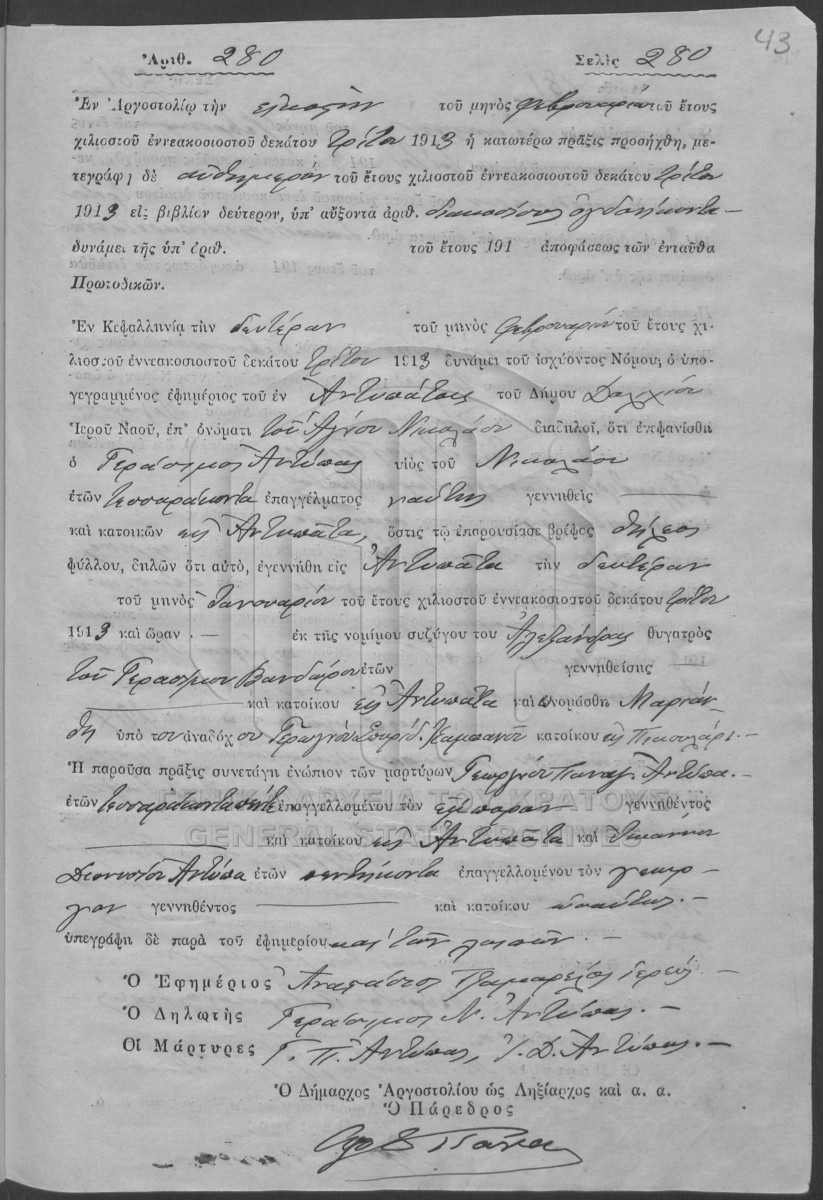 43
Ἀριθ. 280 Σελὶς 280
Ἐν Ἀργοστολίῳ τὴν εἰκοστὴν τοῦ μηνὸς Φεβρουαρίου τοῦ ἔτους
χιλιοστοῦ ἐννεακοσιοστοῦ δεκάτου τρίτου 1913 ἡ κατωτέρω πρᾶξις προσήχθη, με-
τεγράφη δὲ αὐθημερὸν τοῦ ἔτους χιλιοστοῦ ἐννεακοσιοστοῦ δεκάτου τρίτου
1913 εἰς βιβλίον δεύτερον, ὑπ' αὔξοντα ἀριθ. διακοσίους ὀγδοήκοντα —
δυνάμει τῆς ὑπ' ἀριθ. τοῦ ἔτους 191 ἀποφάσεως τῶν ἐνταῦθα
Πρωτοδικῶν.
Ἐν Κεφαλληνίᾳ τὴν δευτέραν τοῦ μηνὸς Φεβρουαρίου τοῦ ἔτους χι-
λιοστοῦ ἐννεακοσιοστοῦ δεκάτου τρίτου 1913 δυνάμει τοῦ ἰσχύοντος Νόμου, ὁ ὑπο-
γεγραμμένος ἐφημέριος τοῦ ἐν Ἀντυπάτοις τοῦ Δήμου Δολιχίου
Ἱεροῦ Ναοῦ, ἐπ' ὀνόματι τοῦ Ἁγίου Νικολάου διαδηλοῖ, ὅτι ἐνεφανίσθη
ὁ Γεράσιμος Ἀντύπας υἱὸς τοῦ Νικολάου
ἐτῶν τεσσαράκοντα ἐπαγγέλματος ναύτης γεννηθεὶς —
καὶ κατοικῶν εἰς Ἀντυπᾶτα, ὅστις τῷ ἐπαρουσίασε βρέφος θήλεος
φύλλου, δηλῶν ὅτι αὐτὸ, ἐγεννήθη εἰς Ἀντυπᾶτα τὴν δευτέραν
τοῦ μηνὸς Ἰανουαρίου τοῦ ἔτους χιλιοστοῦ ἐννεακοσιοστοῦ δεκάτου τρίτου
1913 καὶ ὥραν — ἐκ τῆς νομίμου συζύγου του Ἀλεξάνδρας θυγατρὸς
τοῦ Γερασίμου Βανδώρου ἐτῶν γεννηθείσης —
— καὶ κατοίκου εἰς Ἀντυπᾶτα καὶ ὠνομάσθη Μαριάν-
θη ὑπὸ τοῦ ἀναδόχου Σπυρίδ. κατοίκου εἰς
Ἡ παροῦσα πρᾶξις συνετάγη ἐνώπιον τῶν μαρτύρων Γεωργίου Παναγ. Ἀντύπα. —
ἐτῶν τεσσαράκοντα πέντε ἐπαγγελλομένου τὸν ἔμπορον γεννηθέντος
— καὶ κατοίκου εἰς Ἀντυπᾶτα καὶ Ἰωάννου
Διονυσίου Ἀντύπα ἐτῶν πεντήκοντα ἐπαγγελλομένου τὸν γεωρ-
γὸν γεννηθέντος — καὶ κατοίκου ὡσαύτως. —
ὑπεγράφη δὲ παρὰ τοῦ ἐφημερίου καὶ τῶν λοιπῶν. —
Ὁ Ἐφημέριος Ἀναστάσιος Τζαμαρέλος ἱερεύς. —
Ὁ Δηλωτὴς Γεράσιμος Ν. Ἀντύπας. —
Οἱ Μάρτυρες Γ. Π. Ἀντύπας, Ἰ. Δ. Ἀντύπας. —
Ὁ Δήμαρχος Ἀργοστολίου ὡς Ληξίαρχος καὶ α. α.
Ὁ Πάρεδρος
ΓΕΝΙΚΑ ΑΡΧΕΙΑ ΤΟΥ ΚΡΑΤΟΥΣ
GENERAL STATE ARCHIVES